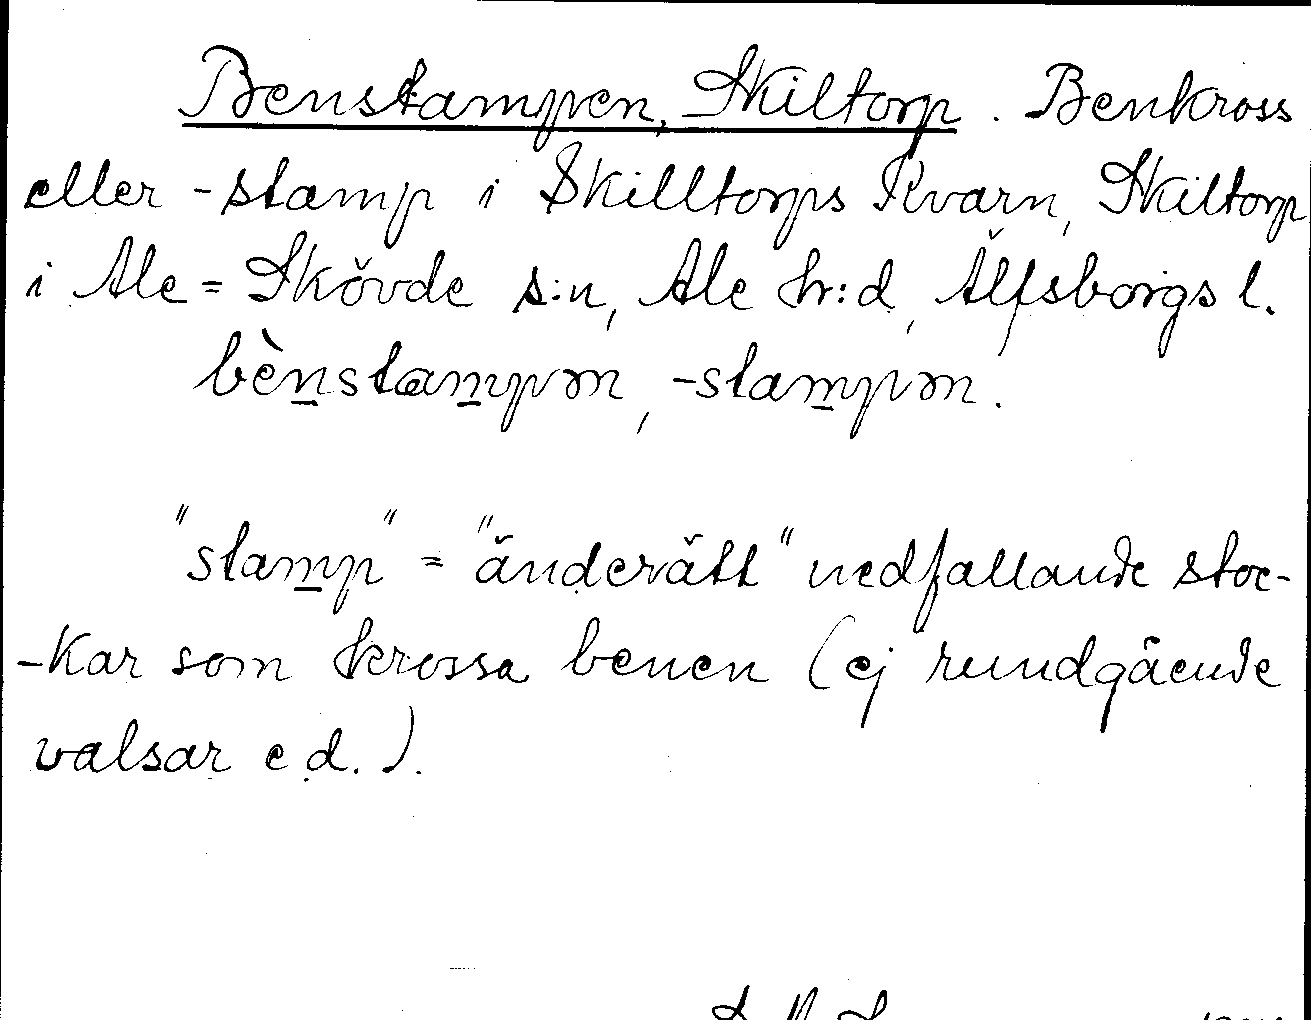 Benstampen, Skiltorp. Benkross
eller -stamp i Skilltorps Kvarn, Skiltorp
i Ale=Skövde s:n, Ale hr:d, Älfsborgs l.
bènstampən, -stampən.
"stamp" = "änderätt" nedfallande stoc-
-kar som krossa benen (ej rundgående
valsar e.d.).